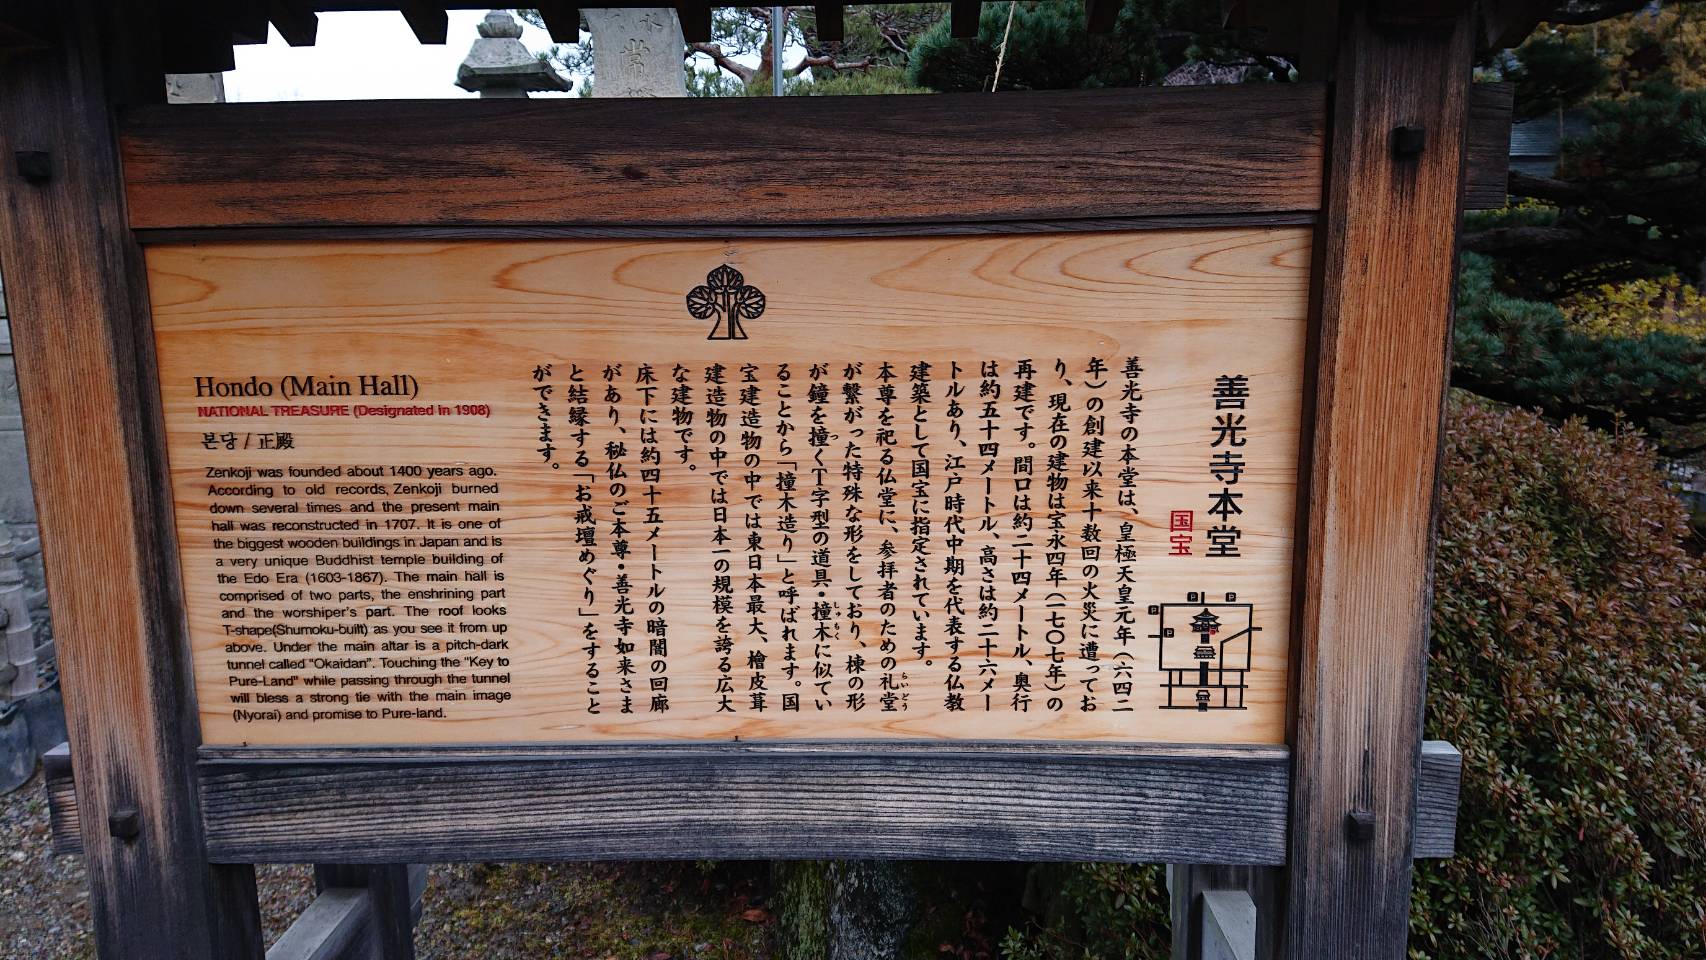 善光寺本堂
国宝
善光寺の本堂は、皇極天皇元年(六四二
年)の創建以来十数回の火災に遭ってお
り、現在の建物は宝永四年(一七〇七年)の
再建です。間口は約二十四メートル、奥行
は約五十四メートル、高さは約二十六メー
トルあり、江戸時代中期を代表する仏教
建築として国宝に指定されています。
本尊を祀る仏堂に、参拝者のための礼堂
らいどう
が繋がった特殊な形をしており、棟の形
が鐘を撞くT字型の道具・撞木に似てい
つ
しゅもく
ることから「撞木造り」と呼ばれます。国
宝建造物の中では東日本最大、檜皮葺
建造物の中では日本一の規模を誇る広大
な建物です。
床下には約四十五メートルの暗闇の回廊
があり、秘仏のご本尊・善光寺如来さま
と結縁する「お戒壇めぐり」をすること
ができます。
Hondo (Main Hall)
NATIONAL TREASURE (Designated in 1908)
본당 / 正殿
Zenkoji was founded about 1400 years ago.
According to old records, Zenkoji burned
down several times and the present main
hall was reconstructed in 1707. It is one of
the biggest wooden buildings in Japan and is
a very unique Buddhist temple building of
the Edo Era (1603-1867). The main hall is
comprised of two parts, the enshrining part
and the worshiper's part. The roof looks
T-shape(Shumoku-built) as you see it from up
above. Under the main altar is a pitch-dark
tunnel called "Okaidan". Touching the "Key to
Pure-Land" while passing through the tunnel
will bless a strong tie with the main image
(Nyorai) and promise to Pure-land.
P
P
P
P
常